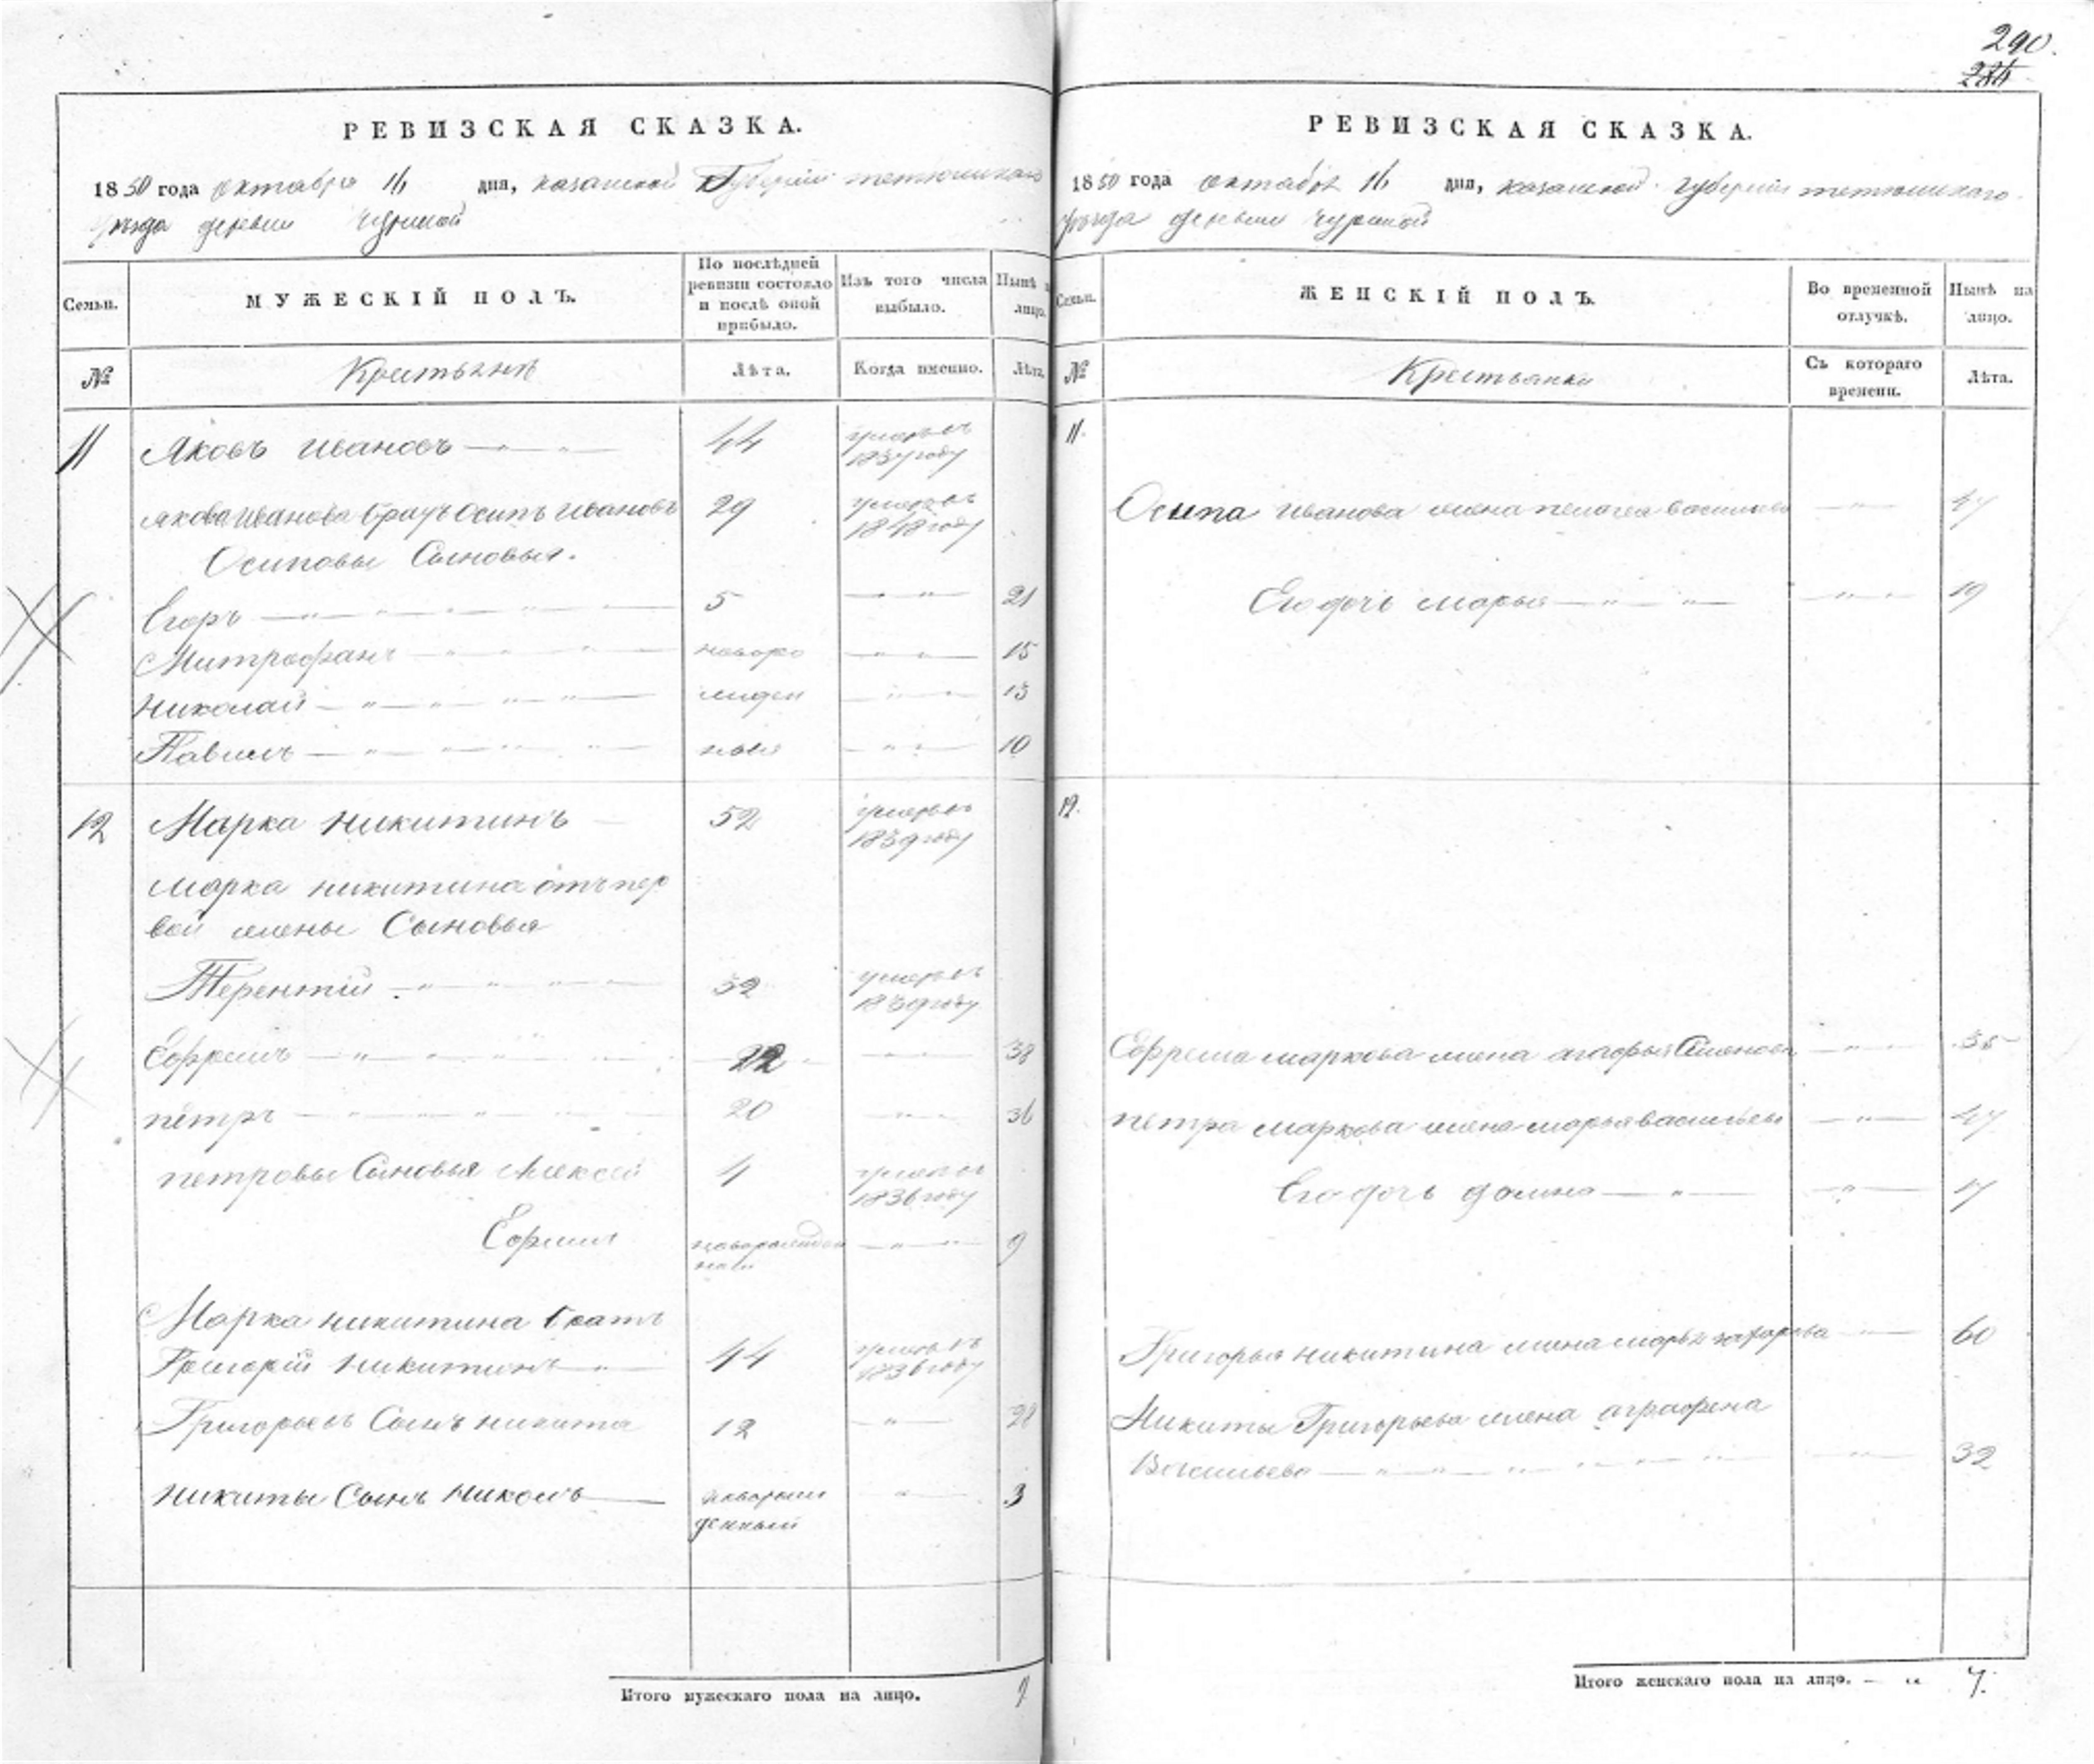 290.
284
РЕВИЗСКАЯ СКАЗКА.
1850 года октября 16 дня, казанской Губернии тетюшскаго
уезда деревни Чуриной
Семьи.
МУЖЕСКІЙ ПОЛЪ.
По послѣдней ревизіи состояло и послѣ оной прибыло.
Изъ того числа выбыло.
Нынѣ на лицо.
№
Крестьяне
Лѣта.
Когда именно.
Лѣта.
11 Яковъ Ивановъ 44 умеръ въ 1837 году
Якова Иванова братъ Осипъ Ивановъ 29 умеръ въ 1848 году
Осиповы Сыновья.
Егоръ 5 21
Митрофанъ новоро 15
Николай жден 13
Павелъ ныя 10
12 Марка Никитинъ 52 умеръ въ 1839 году
Марка Никитина отъ пер
вой жены Сыновья
Терентій 32 умеръ въ 1839 году
Ефремъ 22 38
Петръ 20 36
Петровы Сыновья Алексей 4 умеръ въ 1836 году
Ефимъ новорожден ной 9
Марка Никитина братъ
Григорій Никитинъ 44 умеръ въ 1836 году
Григорьевъ Сынъ Никита 12 28
Никиты Сынъ Никонъ новорож денный 3
Итого мужескаго пола на лицо. 9
РЕВИЗСКАЯ СКАЗКА.
1850 года октября 16 дня, казанской губернии тетюшскаго
уезда деревни Чуриной
Семьи.
ЖЕНСКІЙ ПОЛЪ.
Во временной отлучкѣ.
Нынѣ на лицо.
№
Крестьянки
Съ котораго времени.
Лѣта.
11.
Осипа Иванова жена Пелагея Васильева 47
Его дочь Марья 19
12.
Ефрема Маркова жена Агафья Семенова 35
Петра Маркова жена Марья Васильева 47
Его дочь Домна 17
Григорья Никитина жена Марья Захарова 60
Никиты Григорьева жена Аграфена
Васильева 32
Итого женскаго пола на лицо. 7.